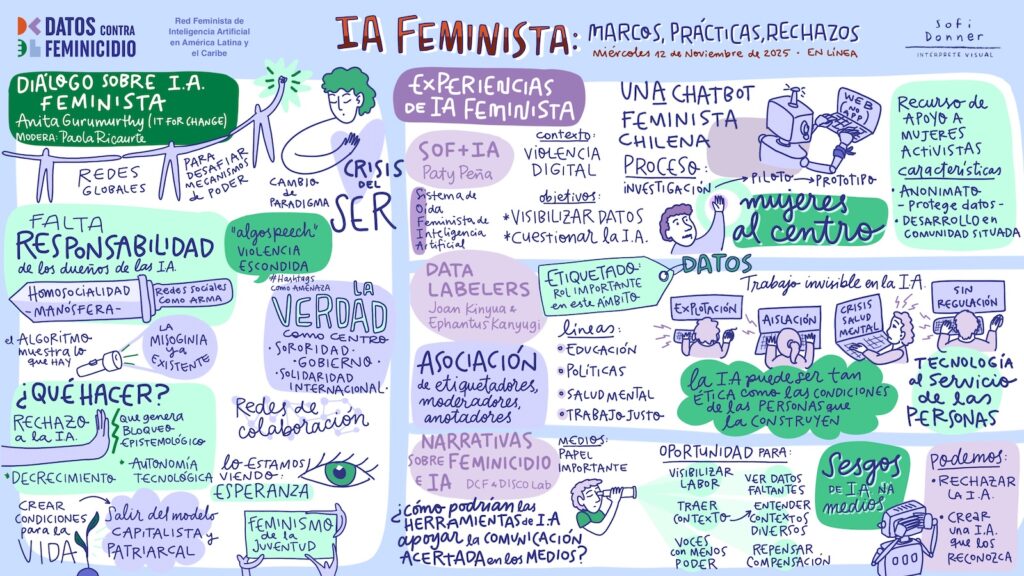 DATOS CONTRA
FEMINICIDIO
Red Feminista de
Inteligencia Artificial
en América Latina y
el Caribe
IA FEMINISTA: MARCOS, PRÁCTICAS, RECHAZOS
Miércoles 12 de Noviembre de 2025 · EN LÍNEA
Sofi
Donner
INTÉRPRETE VISUAL
DIÁLOGO SOBRE I.A.
FEMINISTA
Anita Gurumurthy (IT FOR CHANGE)
MODERA: Paola Ricaurte
REDES
GLOBALES
PARA
DESAFIAR
MECANISMOS
DE PODER
CAMBIO
de
PARADIGMA
CRISIS
DEL
SER
FALTA
RESPONSABILIDAD
de los dueños de las IA.
HOMOSOCIALIDAD
-MANÓSFERA-
Redes sociales
como arma
el ALGORITMO
muestra lo
que HAY
LA
MISOGINIA
ya
EXISTENTE
"algospeech"
VIOLENCIA
ESCONDIDA
#Hashtags
como AMENAZA
LA
VERDAD
como CENTRO
·SORORIDAD·
·GOBIERNO·
·SOLIDARIDAD
INTERNACIONAL·
¿QUÉ HACER?
RECHAZO
a la IA.
que genera
BLOQUEO
EPISTEMOLÓGICO
·DECRECIMIENTO
·AUTONOMÍA
TECNOLÓGICA
Redes de
colaboración
lo ESTAMOS
VIENDO:
ESPERANZA
CREAR
CONDICIONES
para la
VIDA
Salir del modelo
CAPITALISTA y
PATRIARCAL
FEMINISMO
de la
JUVENTUD
EXPERIENCIAS
DE IA FEMINISTA
SOF+IA
Paty Peña
Sistema de
Oída
Feminista de
Inteligencia
Artificial
contexto:
VIOLENCIA
DIGITAL
objetivos:
*VISIBILIZAR DATOS
*CUESTIONAR la I.A.
UNA CHATBOT
FEMINISTA
CHILENA
PROCESO:
INVESTIGACIÓN
PILOTO
PROTOTIPO
WEB
NO
APP
mujeres
al centro
Recurso de
APOYO A
MUJERES
ACTIVISTAS
características
·ANONIMATO
-Protege datos-
·DESARROLLO en
COMUNIDAD SITUADA
DATA
LABELERS
Joan Kinyua &
Ephantus Kanyugi
ETIQUETADO:
ROL IMPORTANTE
en este ÁMBITO
DATOS
ASOCIACIÓN
de etiquetadores,
moderadores,
anotadores
líneas:
EDUCACIÓN
POLÍTICAS
SALUD MENTAL
TRABAJO JUSTO
Trabajo invisible en la I.A.
EXPLOTACIÓN
AISLACIÓN
CRISIS
SALUD
MENTAL
SIN
REGULACIÓN
la I.A puede ser tan
ÉTICA como las CONDICIONES
de las PERSONAS que
la CONSTRUYEN
TECNOLOGÍA
al Servicio
de las
PERSONAS
NARRATIVAS
SOBRE FEMINICIDIO
e IA
DCF & DISCO Lab
MEDIOS:
PAPEL
IMPORTANTE
¿cómo podrían las
HERRAMIENTAS de I.A
apoyar la COMUNICACIÓN
ACERTADA en los MEDIOS?
OPORTUNIDAD PARA:
VISIBILIZAR
LABOR
TRAER
CONTEXTO
VOCES
CON MENOS
PODER
VER DATOS
FALTANTES
ENTENDER
CONTEXTOS
DIVERSOS
REPENSAR
COMPENSACIÓN
Sesgos
DE I.A. NA
medios
Podemos:
·RECHAZAR
LA I.A.
·CREAR
UNA I.A.
que los
RECONOZCA